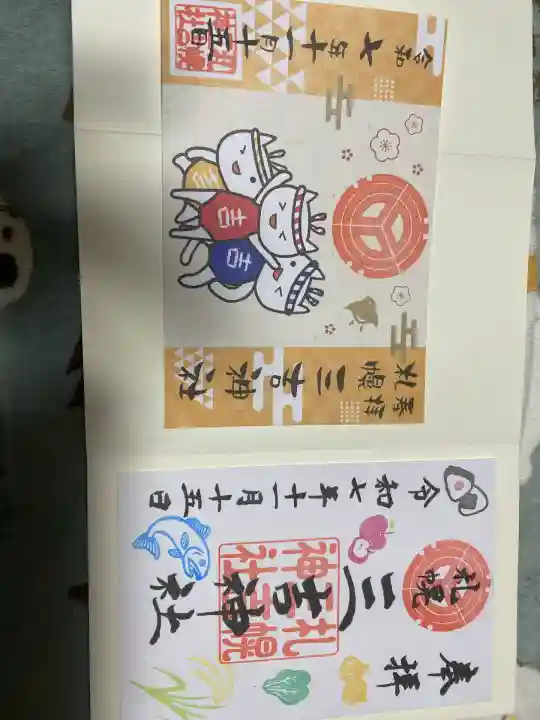 奉拝
札幌
三吉神社
吉
吉
吉
令和七年十一月十五日
札幌
三吉神社
奉拝
札幌
三吉神社
札幌
三吉
神社
令和七年十一月十五日